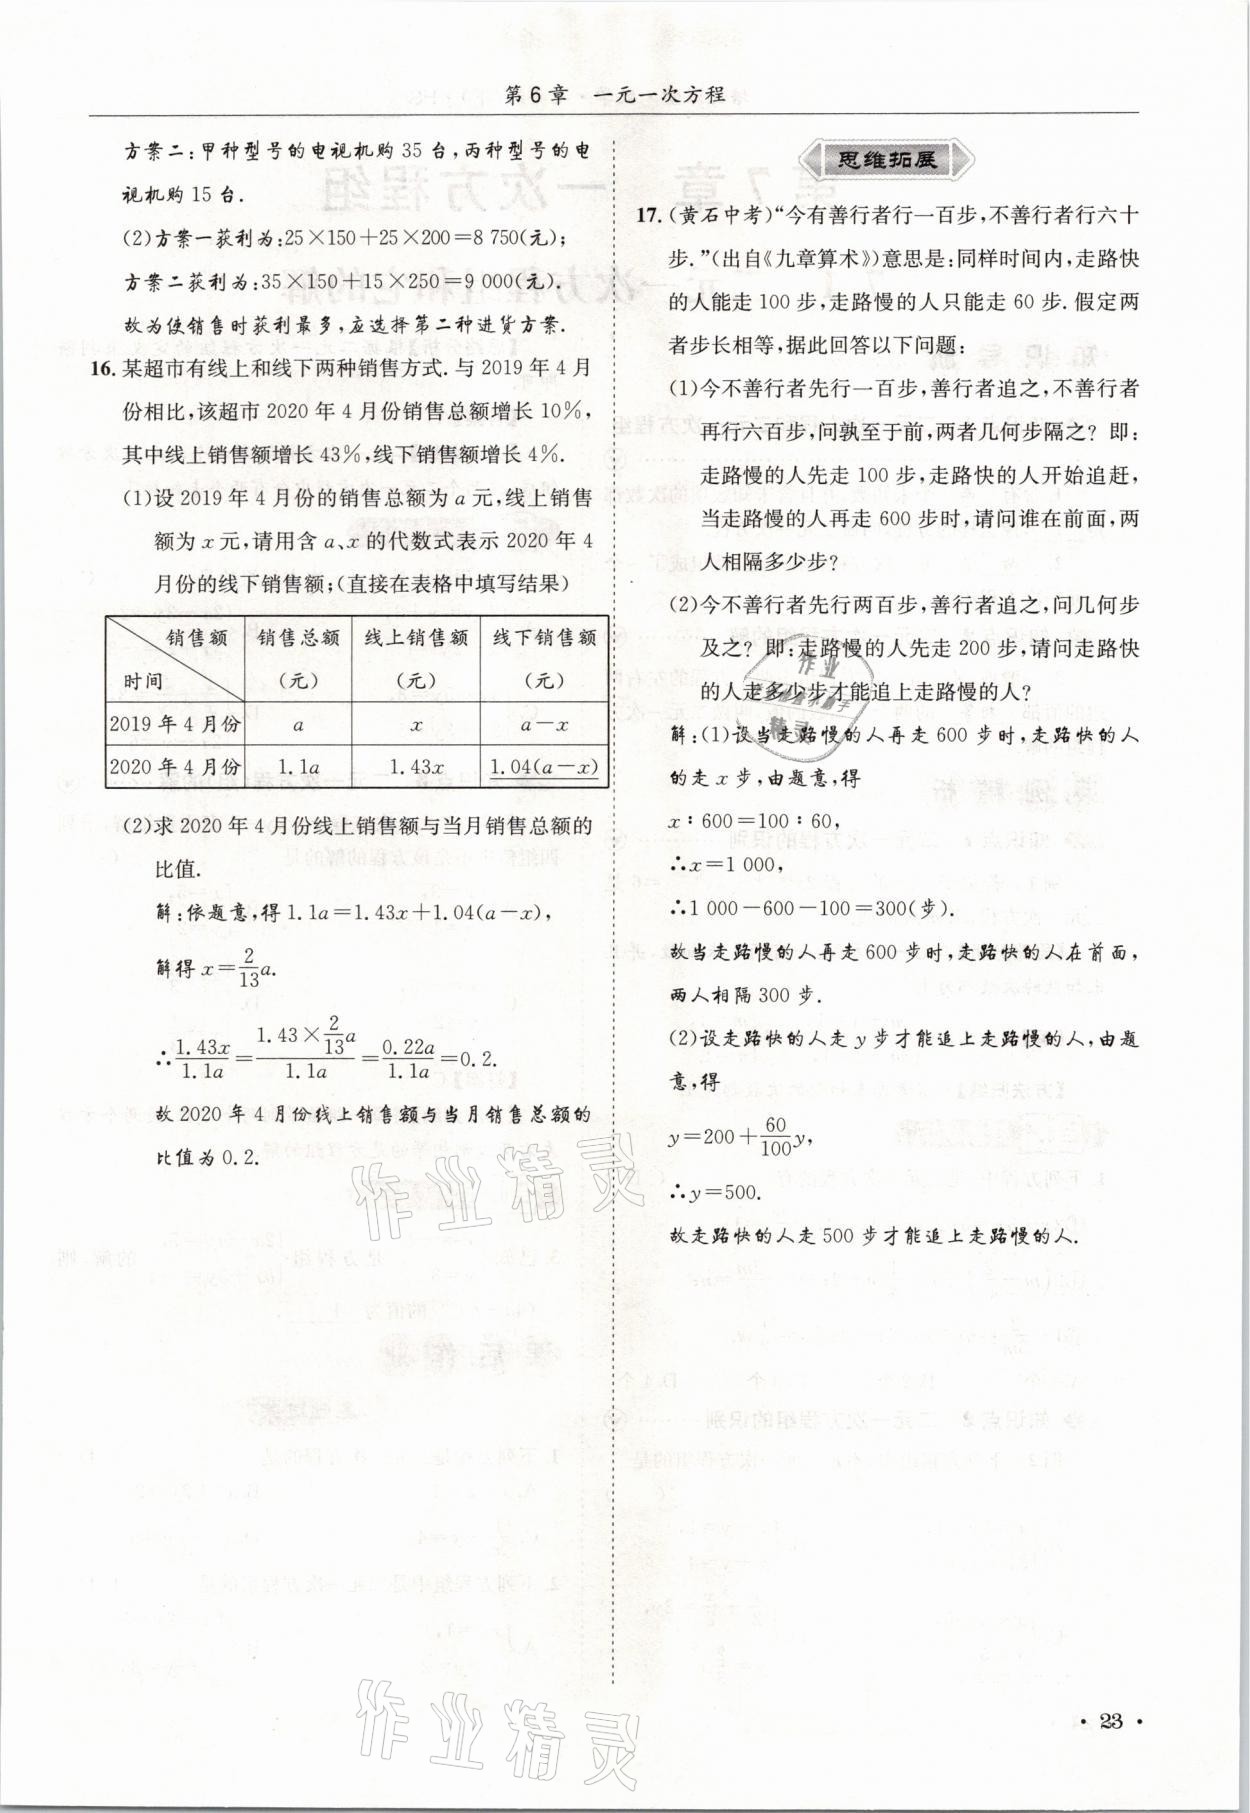 第6章 一元一次方程
方案二:甲种型号的电视机购35台,丙种型号的电
视机购15台.
(2)方案一获利为:25×150+25×200=8 750(元);
方案二获利为:35×150+15×250=9 000(元).
故为使销售时获利最多,应选择第二种进货方案.
16.某超市有线上和线下两种销售方式.与2019年4月
份相比,该超市2020年4月份销售总额增长10%,
其中线上销售额增长43%,线下销售额增长4%.
(1)设2019年4月份的销售总额为a元,线上销售
额为x元,请用含a、x的代数式表示2020年4
月份的线下销售额;(直接在表格中填写结果)
销售额 销售总额 线上销售额 线下销售额
时间 (元) (元) (元)
2019年4月份 a x a-x
2020年4月份 1.1a 1.43x 1.04(a-x)
(2)求2020年4月份线上销售额与当月销售总额的
比值.
解:依题意,得1.1a=1.43x+1.04(a-x),
解得x=2/13a.
∴1.43x/1.1a=1.43×2/13a/1.1a=0.22a/1.1a=0.2.
故2020年4月份线上销售额与当月销售总额的
比值为0.2.
思维拓展
17.(黄石中考)“今有善行者行一百步,不善行者行六十
步.”(出自《九章算术》)意思是:同样时间内,走路快
的人能走100步,走路慢的人只能走60步.假定两
者步长相等,据此回答以下问题:
(1)今不善行者先行一百步,善行者追之,不善行者
再行六百步,问孰至于前,两者几何步隔之?即:
走路慢的人先走100步,走路快的人开始追赶,
当走路慢的人再走600步时,请问谁在前面,两
人相隔多少步?
(2)今不善行者先行两百步,善行者追之,问几何步
及之?即:走路慢的人先走200步,请问走路快
的人走多少步才能追上走路慢的人?
解:(1)设当走路慢的人再走600步时,走路快的人
的走x步,由题意,得
x∶600=100∶60,
∴x=1 000,
∴1 000-600-100=300(步).
故当走路慢的人再走600步时,走路快的人在前面,
两人相隔300步.
(2)设走路快的人走y步才能追上走路慢的人,由题
意,得
y=200+60/100y,
∴y=500.
故走路快的人走500步才能追上走路慢的人.
作业
精灵
作业精灵
作业精灵
·23·